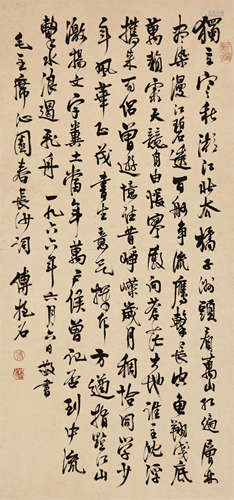 獨立寒秋湘江北去橘子洲頭看萬山紅遍層林
盡染漫江碧透百舸爭流鷹擊長空魚翔淺底
萬類霜天競自由悵寥廓問蒼茫大地誰主沈浮
攜來百侶曾遊憶往昔崢嶸歲月稠恰同學少
年風華正茂書生意氣揮斥方遒指點江山
激揚文字糞土當年萬戶侯曾記否到中流
擊水浪遏飛舟 一九六六年六月六日敬書
毛主席沁園春長沙詞 傅抱石